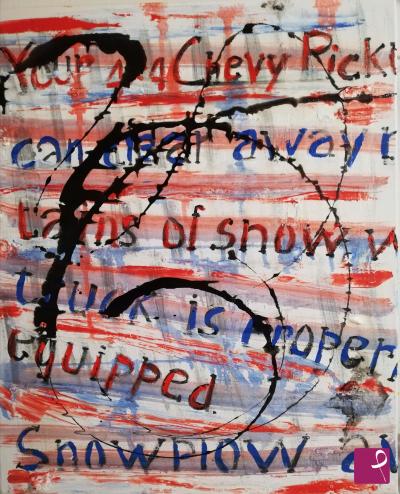 Your 4x4 Chevy Rick
can clear away
tains of snow w
truck is proper
equipped
Snowplow a